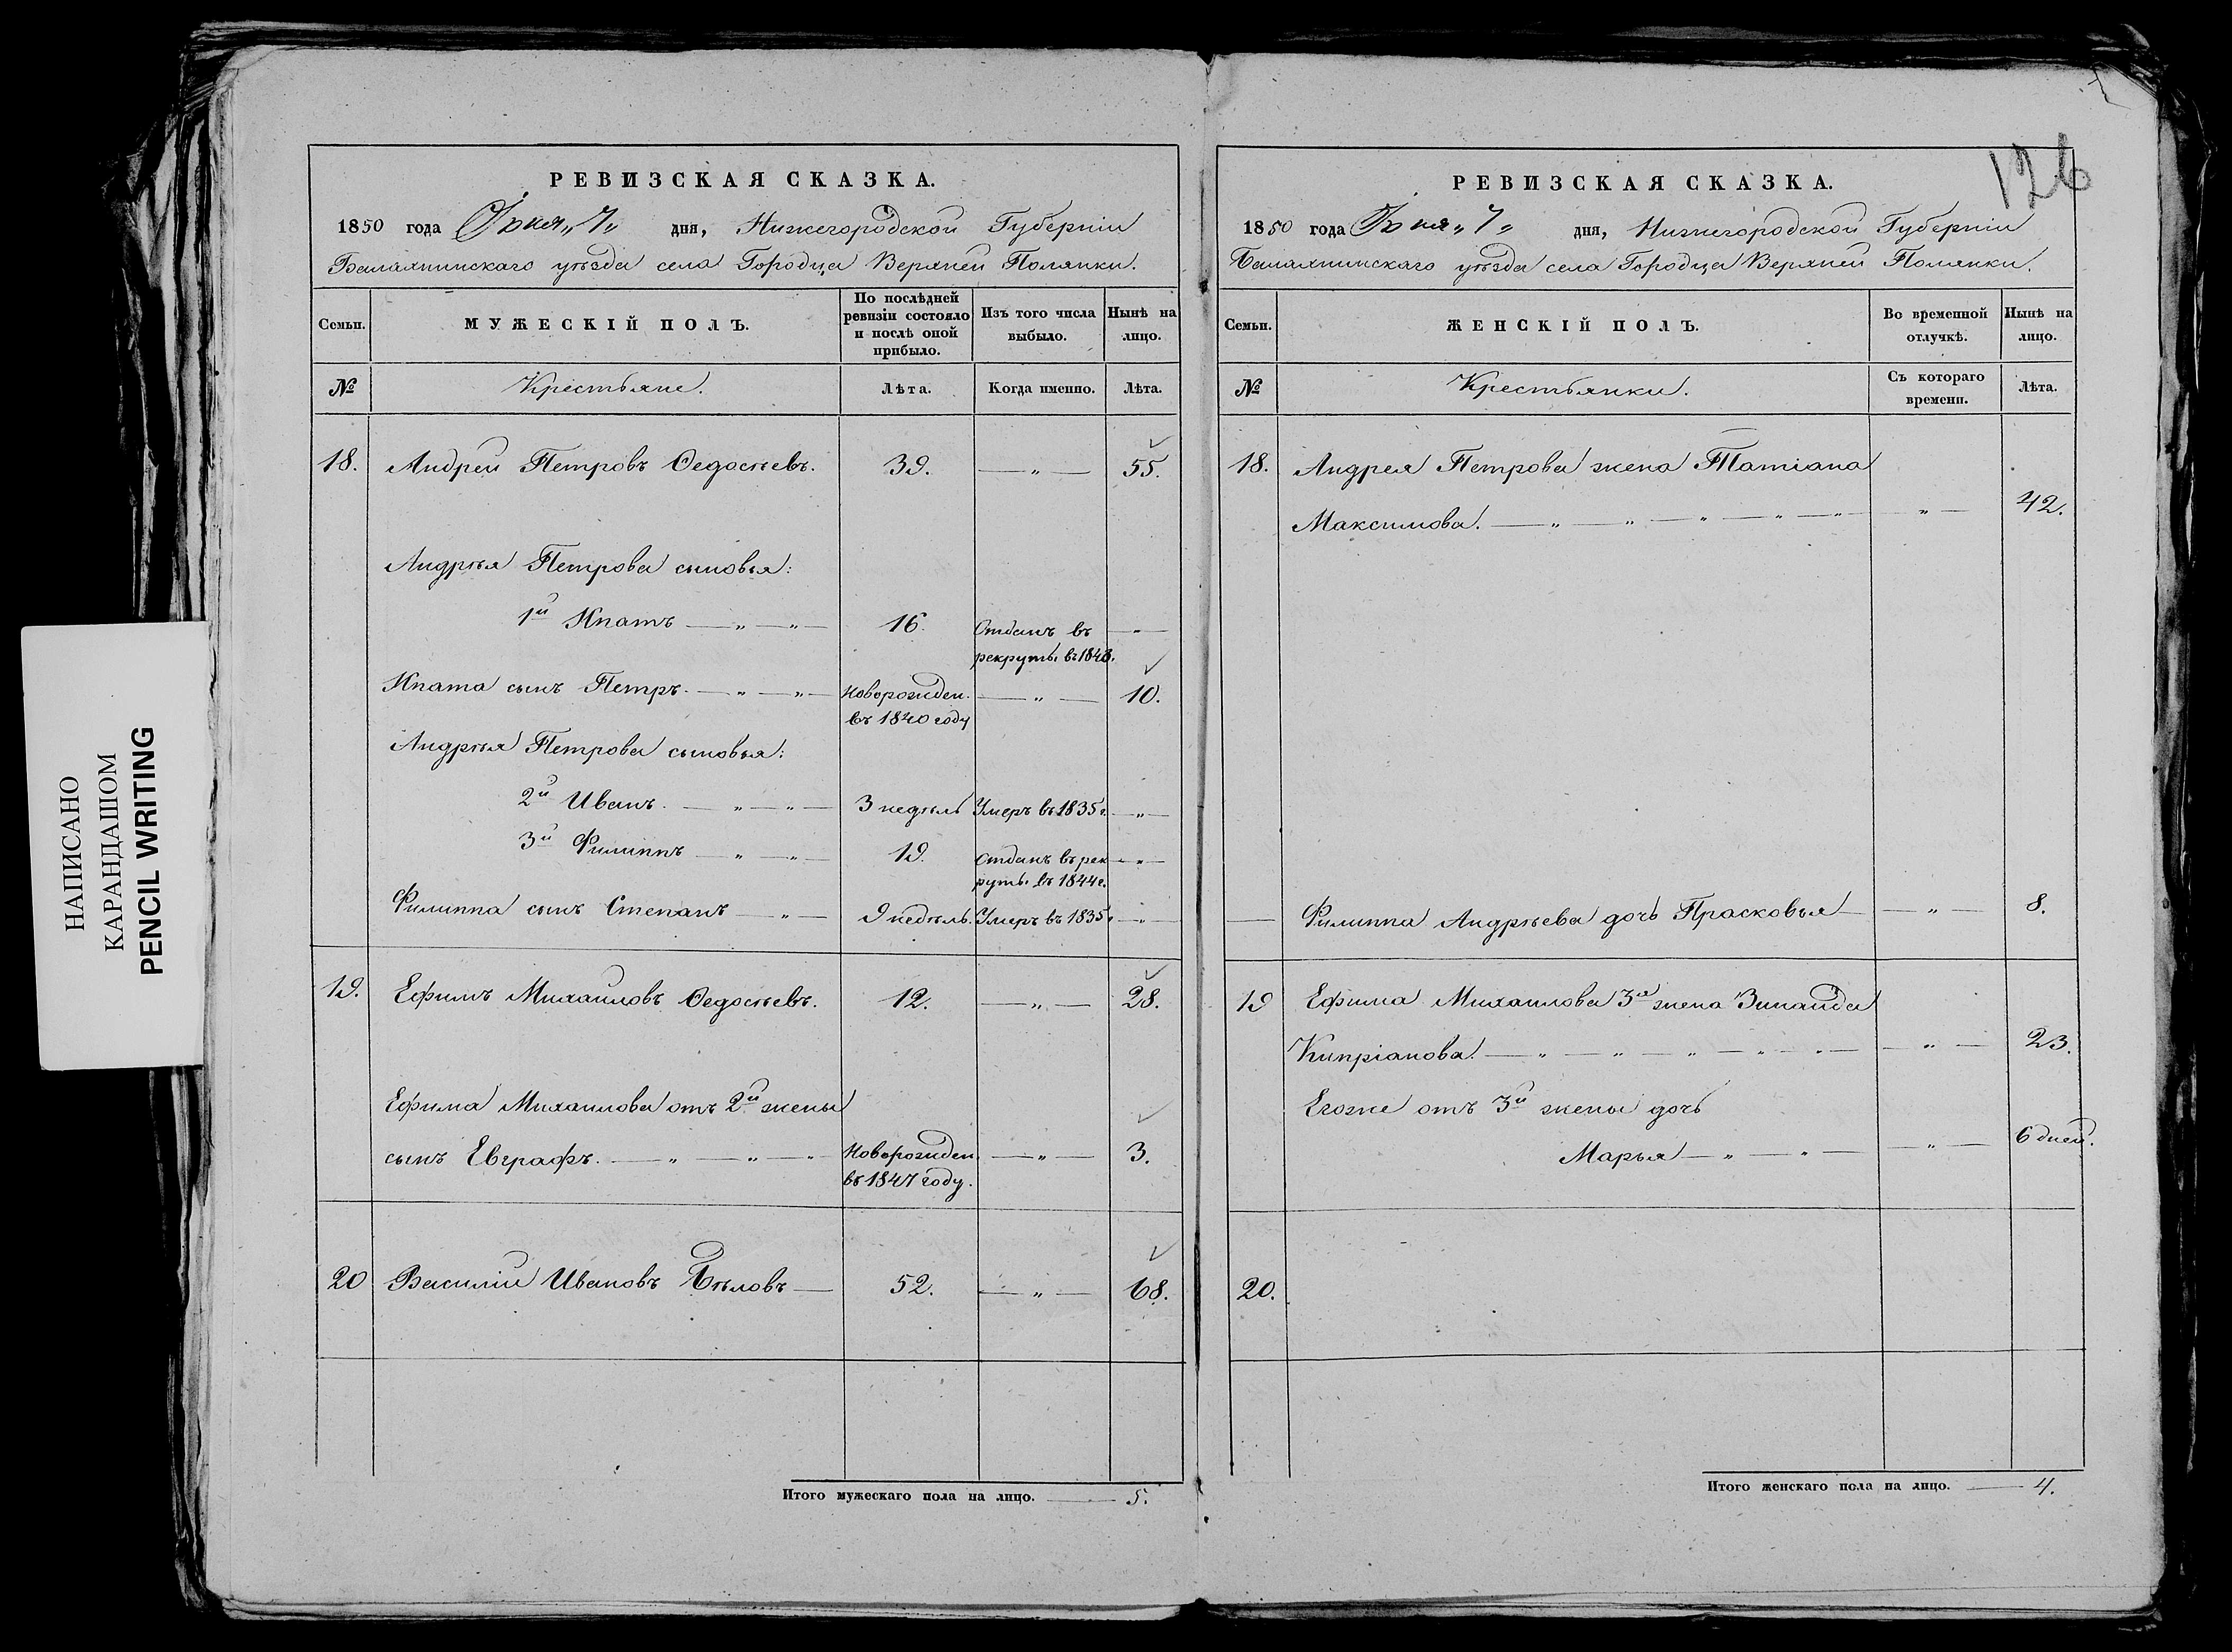 НАПИСАНО
КАРАНДАШОМ
PENCIL WRITING
РЕВИЗСКАЯ СКАЗКА.
1850 года Іюня „7„ дня, Нижегородской Губерніи
Балахнинскаго уѣзда села Городца Верхней Полянки.
Семьи. МУЖЕСКІЙ ПОЛЪ. По послѣдней ревизіи состояло и послѣ оной прибыло. Изъ того числа выбыло. Нынѣ на лицо.
№ Крестьяне. Лѣта. Когда именно. Лѣта.
18. Андрей Петровъ Ѳедосѣевъ. 39. — „ — 55.
Андрѣя Петрова сыновья:
1й Ипатъ — „ — „ — 16. Отданъ въ — „ —
рекруты въ 1843.
Ипата сынъ Петръ. — „ — „ — Новорожден. — „ — 10.
въ 1840 году
Андрѣя Петрова сыновья:
2й Иванъ. — „ — „ — 3 недѣль Умеръ въ 1835 г. — „ —
3й Филиппъ — „ — „ — 19. Отданъ въ рек — „ —
руты въ 1844 г.
Филиппа сынъ Степанъ — „ — 9 недѣль. Умеръ въ 1835 г — „ —
19. Ефимъ Михайловъ Ѳедосѣевъ. 12. — „ — 28.
Ефима Михайлова отъ 2й жены
сынъ Евграфъ. — „ — „ — „ Новорожден. — „ — 3.
въ 1847 году.
20 Василій Ивановъ Бѣловъ — 52. — „ — 68.
Итого мужескаго пола на лицо. — 5.
126
РЕВИЗСКАЯ СКАЗКА.
1850 года Іюня „7„ дня, Нижегородской Губерніи
Балахнинскаго уѣзда села Городца Верхней Полянки.
Семьи. ЖЕНСКІЙ ПОЛЪ. Во временной отлучкѣ. Нынѣ на лицо.
№ Крестьянки. Съ котораго времени. Лѣта.
18. Андрея Петрова жена Татіана
Максимова. — „ — „ — „ — „ — „ — „ — 42.
— Филиппа Андрѣева дочь Прасковья — — „ — 8.
19 Ефима Михайлова 3я жена Зинаида
Кипріанова. — „ — „ — „ — „ — „ — — „ — 23.
Егоже отъ 3й жены дочь
Марья — „ — „ — — „ — 6 дней.
20.
Итого женскаго пола на лицо. — 4.